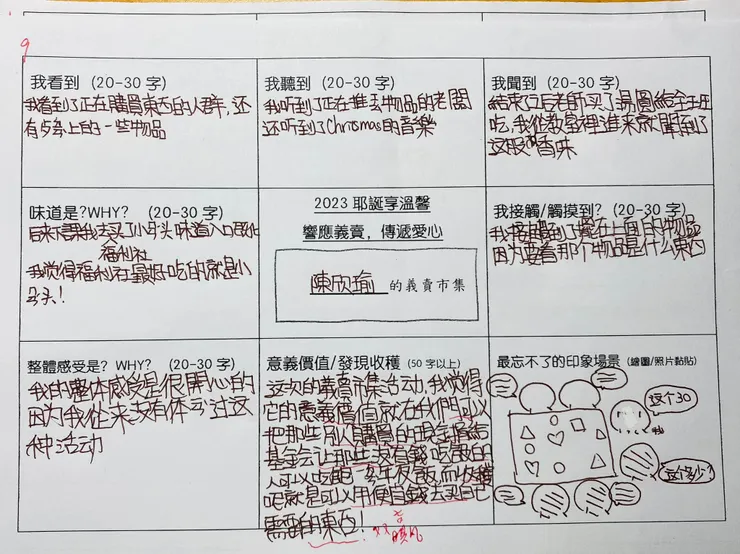 9
我看到 (20-30 字)
我看到了正在購買東西的人群,还
有桌上的一些物品
我聽到 (20-30 字)
我听到了正在推卖物品的老闆
还听到了Christmas的音樂
我聞到 (20-30 字)
結束了后老師买了湯圓給全班
吃,我從教室裡進來就聞到了
这股香味
味道是?WHY? (20-30 字)
后来下課我去
福利社
买了小馒头味道入口即化
我觉得福利社最好吃的就是小
头!
2023 耶誕享溫馨
響應義賣,傳遞愛心
陳欣瑜 的義賣市集
我接觸/觸摸到? (20-30 字)
我接觸到了擺在上面的物品
因为要看那个物品是什么東西
整體感受是? WHY? (20-30 字)
我的整体感受是很開心的
因为我從来没有体 过这
种活动
意義價值/發現收穫 (50 字以上)
这次的義賣市集活动,我觉得
它的意義價值就在我們可以
把那些別人購買的現金捐給
基金会让那些没有錢吃飯的
人可以吃飽 年夜飯,而收穫
呢就是可以用便宜錢去买自己
需要的東西!
最忘不了的印象場景 (繪圖/照片黏貼)
这个30
我
这个多少?